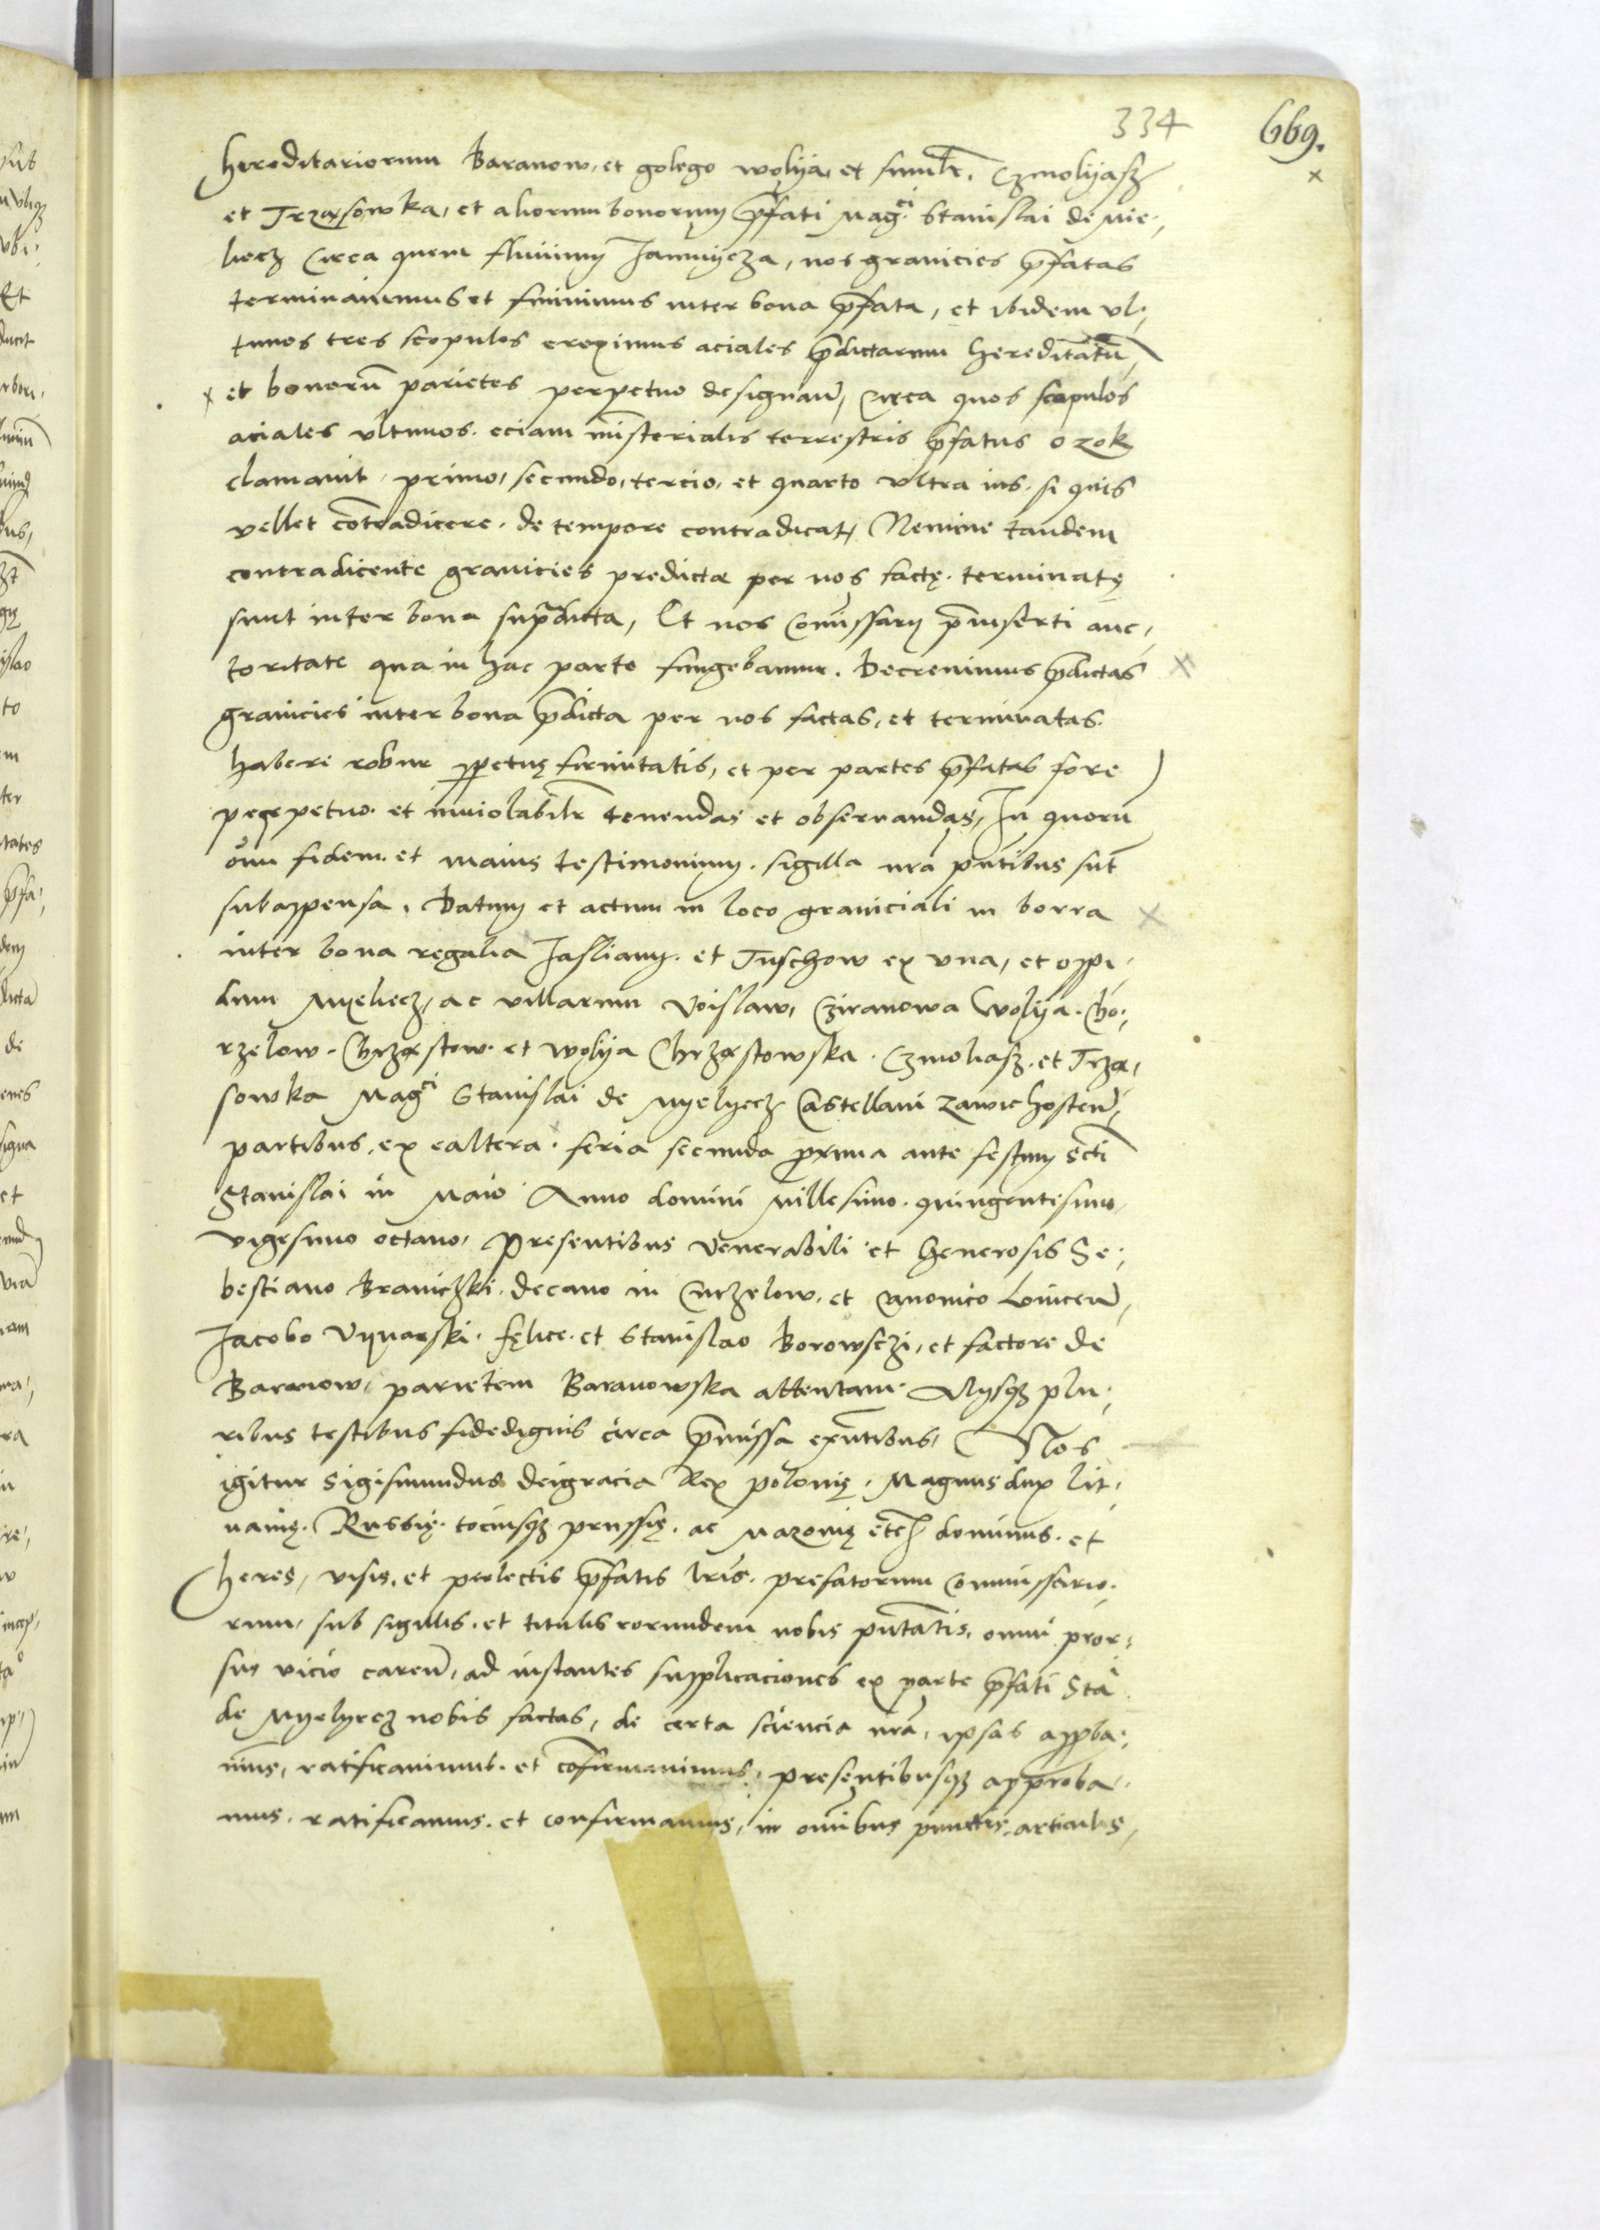 334
669.
hereditariorum Baranow, et golego wolya, et simulr. Czmolyasz
et Trzęsowka, et aliorum bonorum p̄fati Magci Stanislai de Mie-
liecz Circa quem fluuium Jamnycza, nos granicies p̄fatas
terminauimus et finiuimus inter bona p̄fata, et ibidem vl-
timos tres scopulos ereximus aciales p̄dictarum hereditatū,
et bonorū parietes perpetuo designan̄, Circa quos scopulos
aciales vltimos. eciam mīsterialis terrestris p̄fatus Ozok
clamauit, primo, secundo, tercio, et quarto vltra ius. si quis
vellet cōtradicere. de tempore contradicat, Nemine tandem
contradicente granicies predictæ per nos factę. terminatę
sunt inter bona sup̄dicta, Et nos Com̄issarij p̄inserti auc-
toritate qua in hac parte fungebamur. Decreuimus p̄dictas
granicies inter bona p̄dicta per nos factas, et terminatas.
habere robur ꝑpetuę firmitatis, et per partes p̄fatas fore
perpetuo. et inuiolabilr̄ tenendas et obseruandas, In quorū
om̄u fidem. et maius testimonium. sigilla nr̄a pn̄tibus sūt
subappensa. Datum et actum in loco graniciali in borra
inter bona regalia Jasliany. et Tuschow ex vna, et oppi-
dum Myeliecz, ac villarum Voislaw, Cziranowa Wolya. Cho-
rzelow. Chrzęstow. et wolya Chrzęstowska. Czmoliasz. et Trzę-
sowka Magci Stanislai de Myelyecz Castellani Zawichosten̄,
partibus, ex ealtera. feria secunda proxima ante festum Sct̄i
Stanislai in Maio Anno domini Millesimo. quingentesimo,
vigesimo octauo, Presentibus Venerabili et Generosis Se-
bestiano Braniczki. decano in Curzelow. et Canonico Louicen̄,
Jacobo Vynarski. fęlice. et Stanislao Borowsczi, et factore de
Baranow, parietem Baranowska attentan̄. Alysqȝ plu-
ribus testibus fidedignis circa p̄missa exn̄tibus, Nos
igitur Sigismundus deigracia Rex polonię. Magnus dux Lit-
uanię. Russię. tociusqȝ prussię. ac Mazouię etc̄ dominus. et
heres, visis, et perlectis p̄fatis lr̄is. prefatorum Commissario-
rum, sub sigillis. et titulis eorundem nobis pn̄tatis, omni pror-
sus vicio caren̄, ad instantes supplicaciones ex parte p̄fati Sta
de Myelyecz nobis factas, de certa sciencia nr̄a, ipsas apꝓba-
uimus, ratificauimus. et cōfirmauimus, presentibusqȝ approba-
mus. ratificamus. et confirmamus, in om̄ibus punctis. articulis,